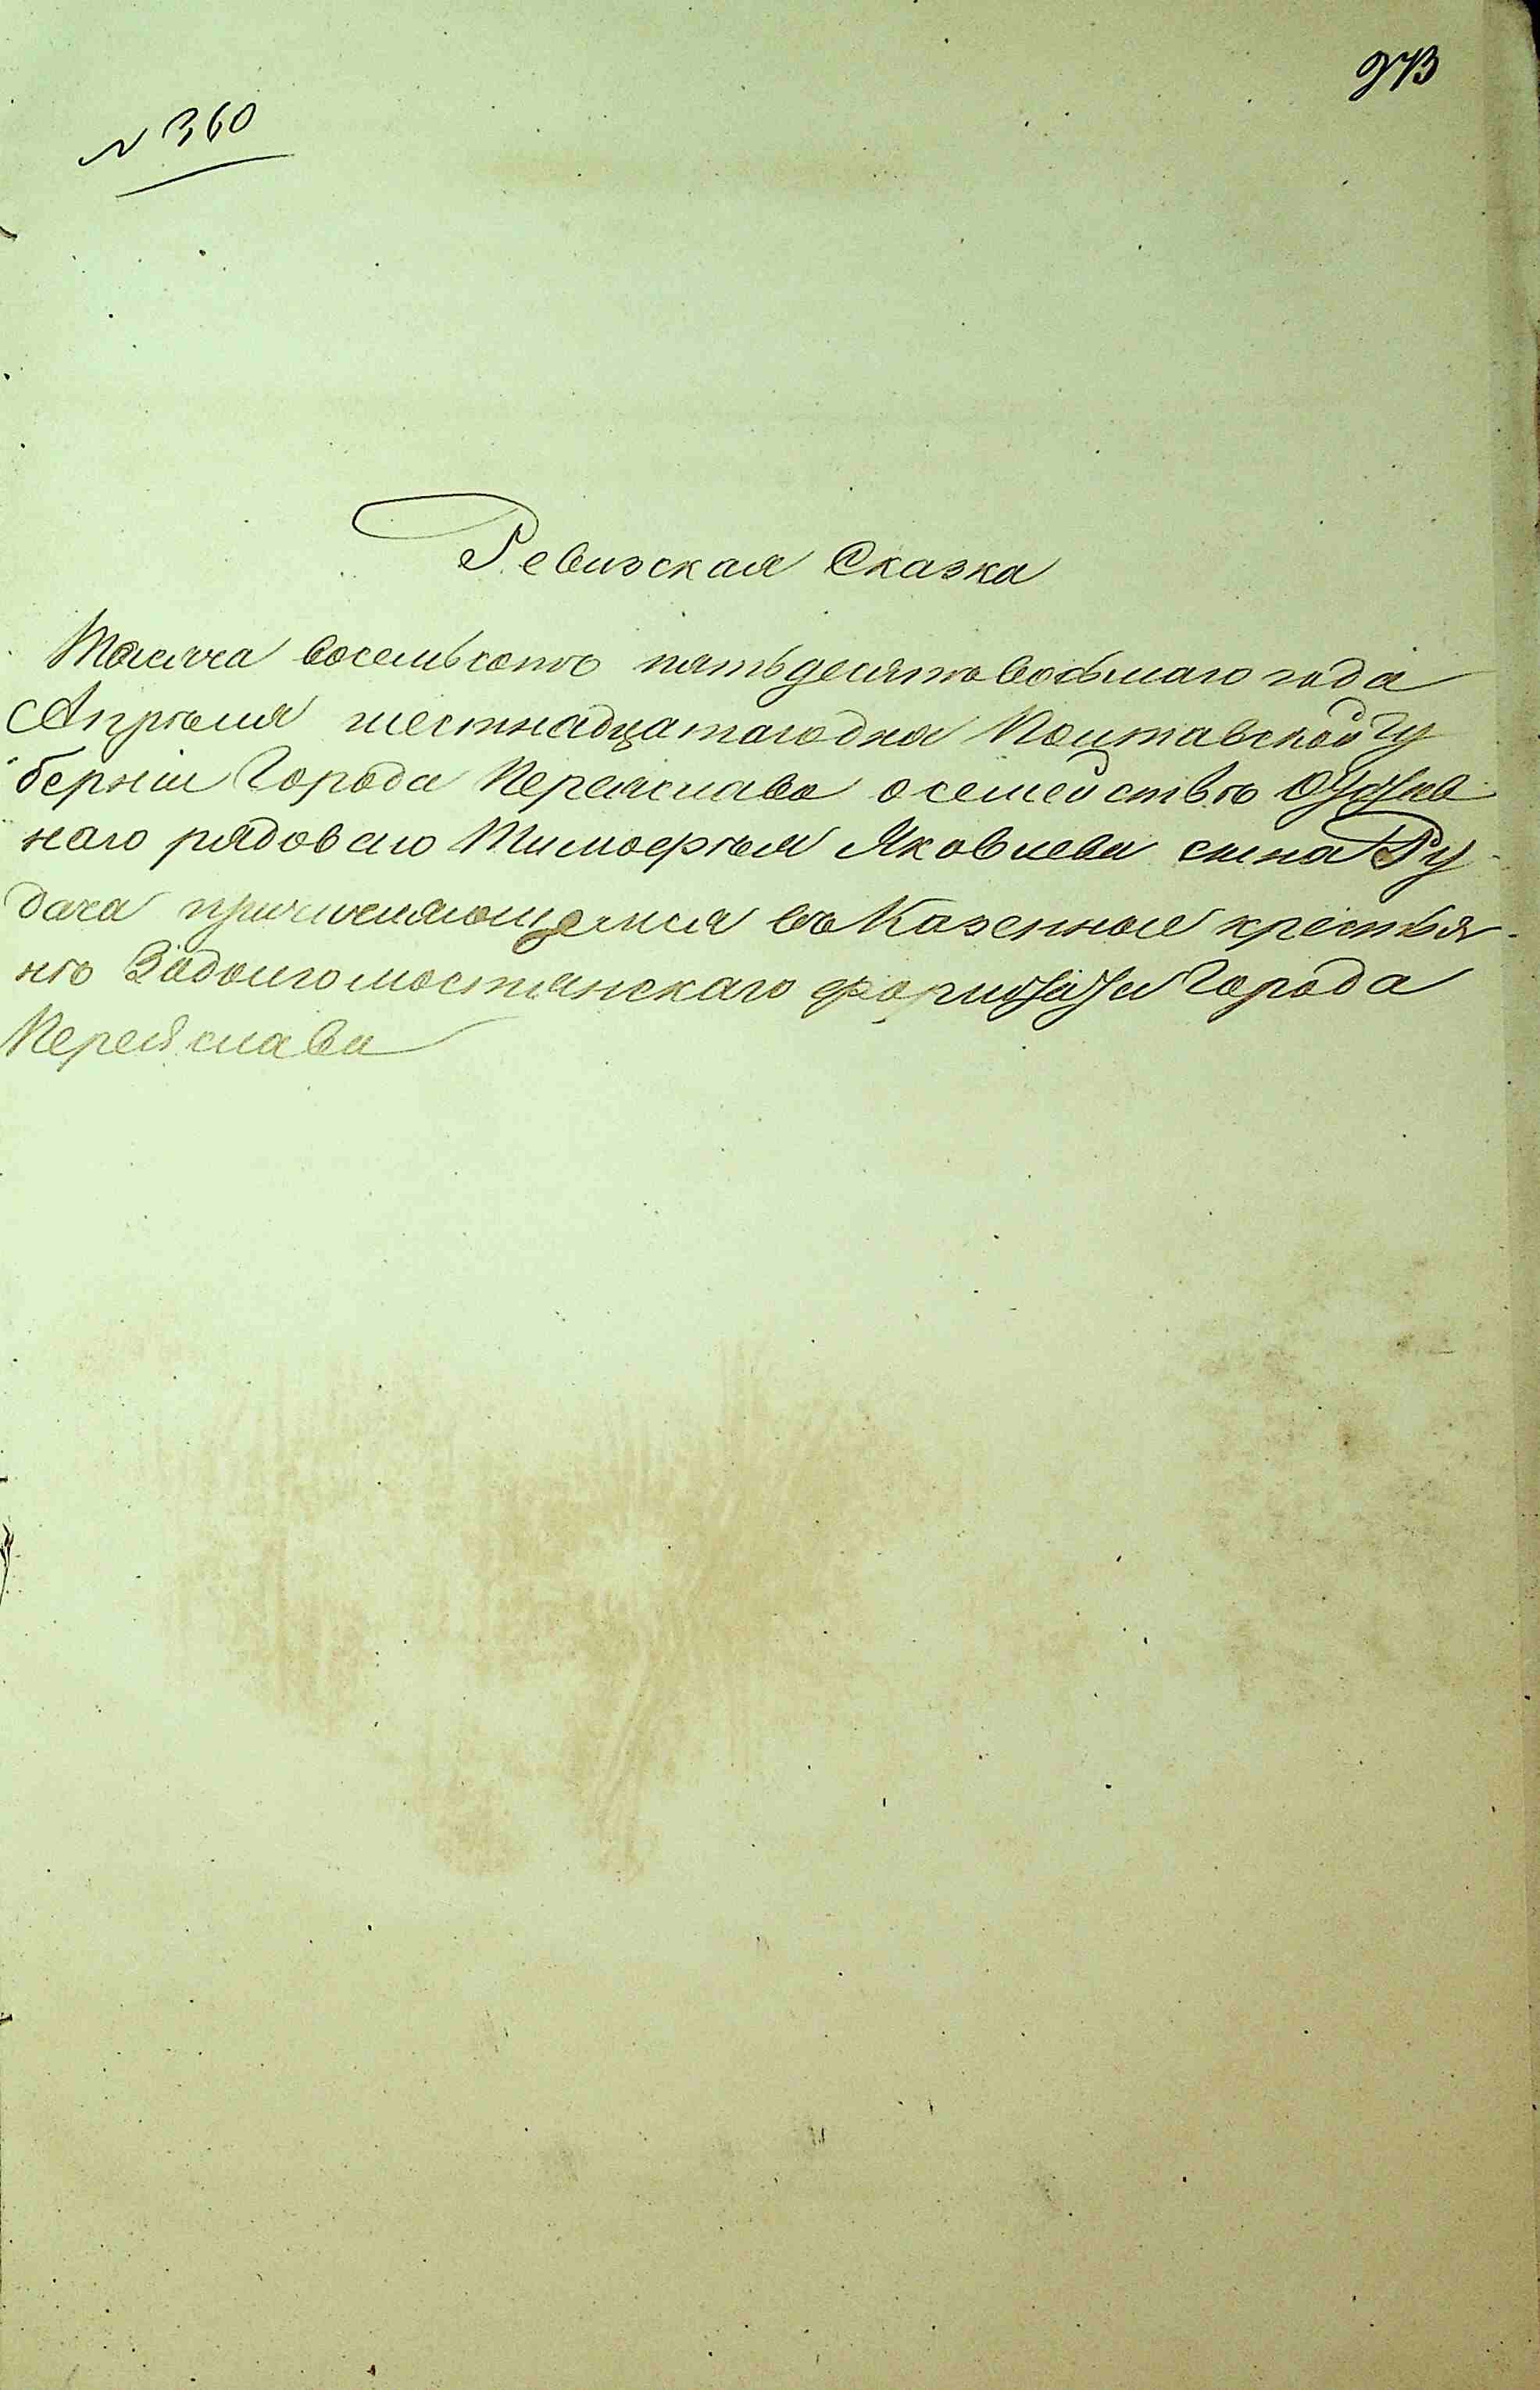 973
№ 360
Ревизская Сказка
Тысяча восемьсотъ пятьдесятъ восьмаго года
Апрѣля шестнадцатаго дня Полтавской Гу
берніи Города Переяслава о семействѣ
наго рядоваго Тимофѣя Яковлева сына Ру
дача причисляющемся въ Казенные крестья-
нѣ Задолгомостянскаго форштата Города
Переяслава